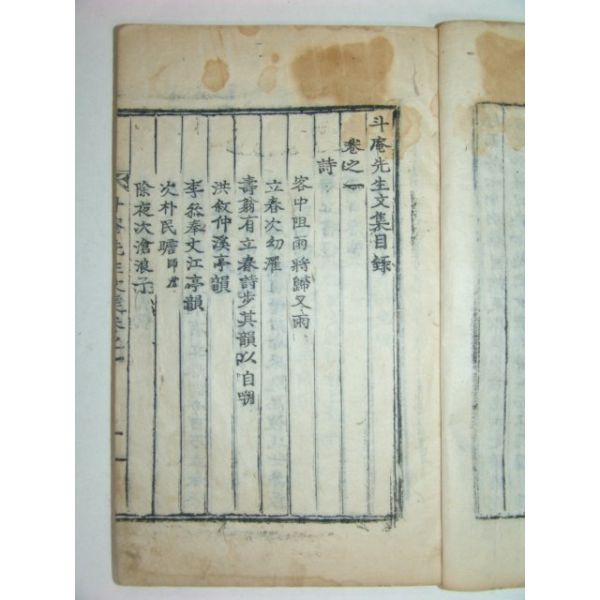 斗庵先生文集目錄
卷之一
詩
客中阻雨將歸又雨
立春次幼濯
壽翁有立春詩步其韻以自嘲
洪敘仲溪亭韻
李 奉丈江亭韻
次朴民瞻師
除夜次滄浪子
斗庵先生文